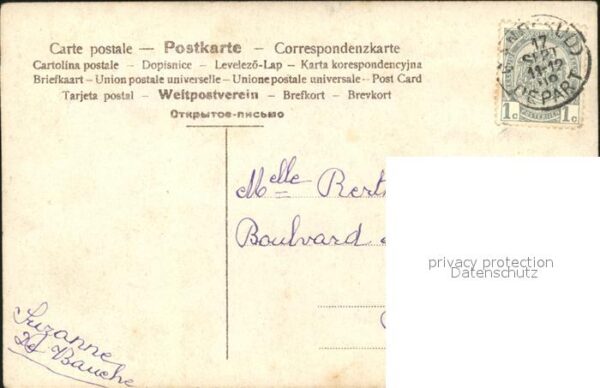 Carte postale — Postkarte — Correspondenzkarte
Cartolina postale - Dopisnice - Levelező-Lap - Karta korespondencyjna
Briefkaart - Union postale universelle - Unione postale universale - Post Card
Tarjeta postal - Weltpostverein - Brefkort - Brevkort
Открытое-письмо
17
SEPT
11-12
DEPART
1c 1c
Melle Bert
Boulvard
privacy protection
Datenschutz
Suzanne
De Bauche